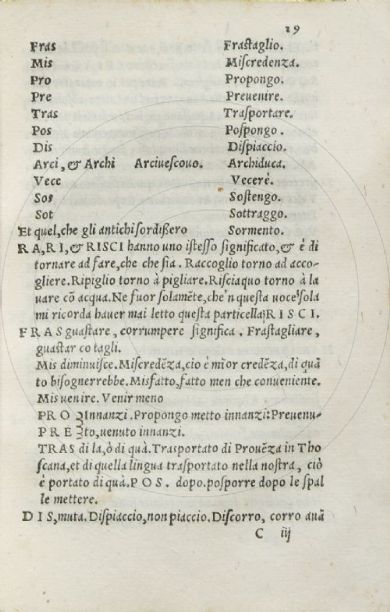 29
Fras Fraſtaglio.
Mis Miſcredenza.
Pro Propongo.
Pre Preuenire.
Tras Traſportare.
Pos Poſpongo.
Dis Diſpiaccio.
Arci, & Archi Arciueſcouo. Archiduca.
Vece Vecerè.
Sos Soſtengo.
Sot Sottraggo.
Et quel, che gli antichi ſordißero Sormento.
RA, RI, & RISCI hanno uno iſteſſo ſignificato, & è di
tornare ad fare, che che ſia. Raccoglio torno ad acco-
gliere. Ripiglio torno à pigliare. Riſciaquo torno à la
uare cō acqua. Ne fuor ſolamēte, che'n queſta uoce ſola
mi ricorda hauer mai letto queſta particella RISCI.
FRAS guaſtare, corrumpere ſignifica. Fraſtagliare,
guaſtar co tagli.
Mis diminuiſce. Miſcredēza, cio è mīor credēza, di quā
to biſognerrebbe. Misfatto, fatto men che conueniente.
Mis uenire. Venir meno
PRO Innanzi. Propongo metto innanzi: Preuenu-
PRE to, uenuto innanzi.
TRAS di la, ò di quà. Traſportato di Prouēza in Tho
ſcana, et di quella lingua traſportato nella noſtra, ciò
è portato di quà. POS. dopo. poſporre dopo le ſpal
le mettere.
DIS, muta. Diſpiaccio, non piaccio. Diſcorro, corro auā
C iij